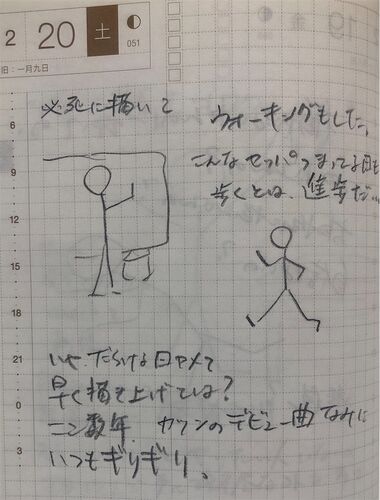 2 20 土 051
旧:一月九日
19 金
必死に描いて
ウォーキングもした。
こんなせっぱつまってる日も
歩くとは、進歩だ…
6
9
12
15
21
0
3
いや、だらける日ヤメて
早く描き上げては?
ここ数年、カツンのデビュー曲なみに
いつもぎりぎり。